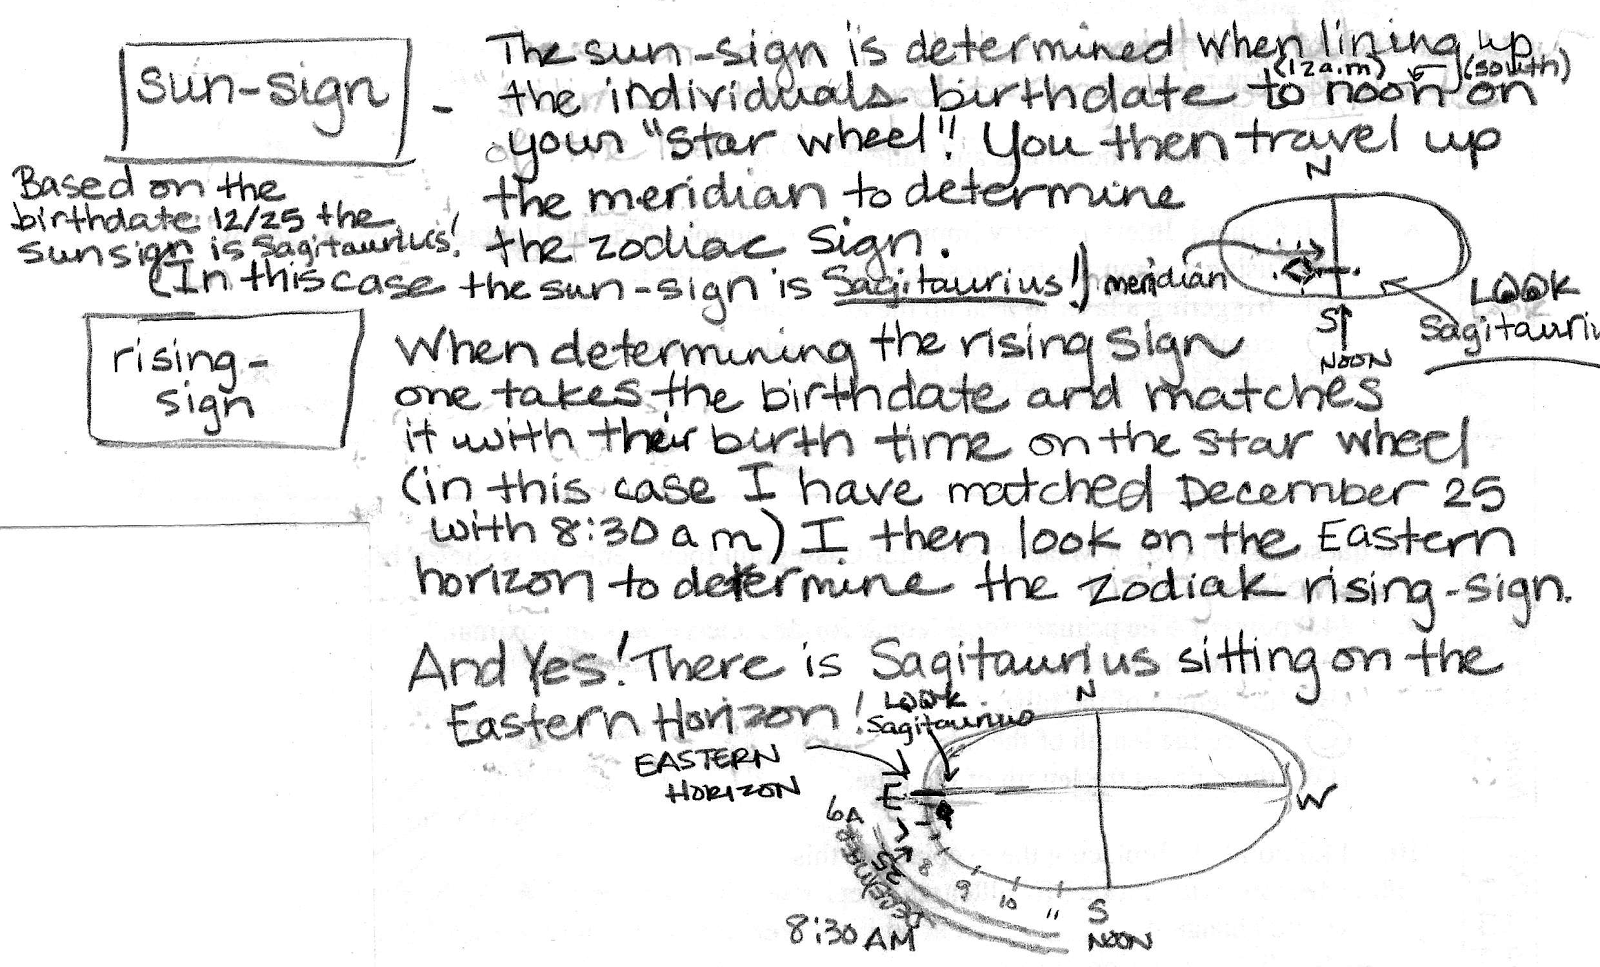 sun-sign
-
The sun-sign is determined when lining up
(12a.m) (south)
the individuals birthdate to noon on
your "star wheel"! You then travel up
the meridian to determine
the zodiac sign.
(In this case the sun-sign is Sagitaurius!)
Based on the
birthdate 12/25 the
sunsign is Sagitaurius!
N
meridian
S
NOON
LOOK
Sagitauriu
rising-
sign
When determining the rising sign
one takes the birthdate and matches
it with their birth time on the star wheel
(in this case I have matched December 25
with 8:30 am) I then look on the Eastern
horizon to determine the zodiak rising-sign.
And Yes! There is Sagitaurius sitting on the
Eastern Horizon!
LOOK
Sagitaurius
EASTERN
HORIZON
N
E
W
6A
7
8
9
10
11
S
NOON
DECEMBER
25
8:30 AM